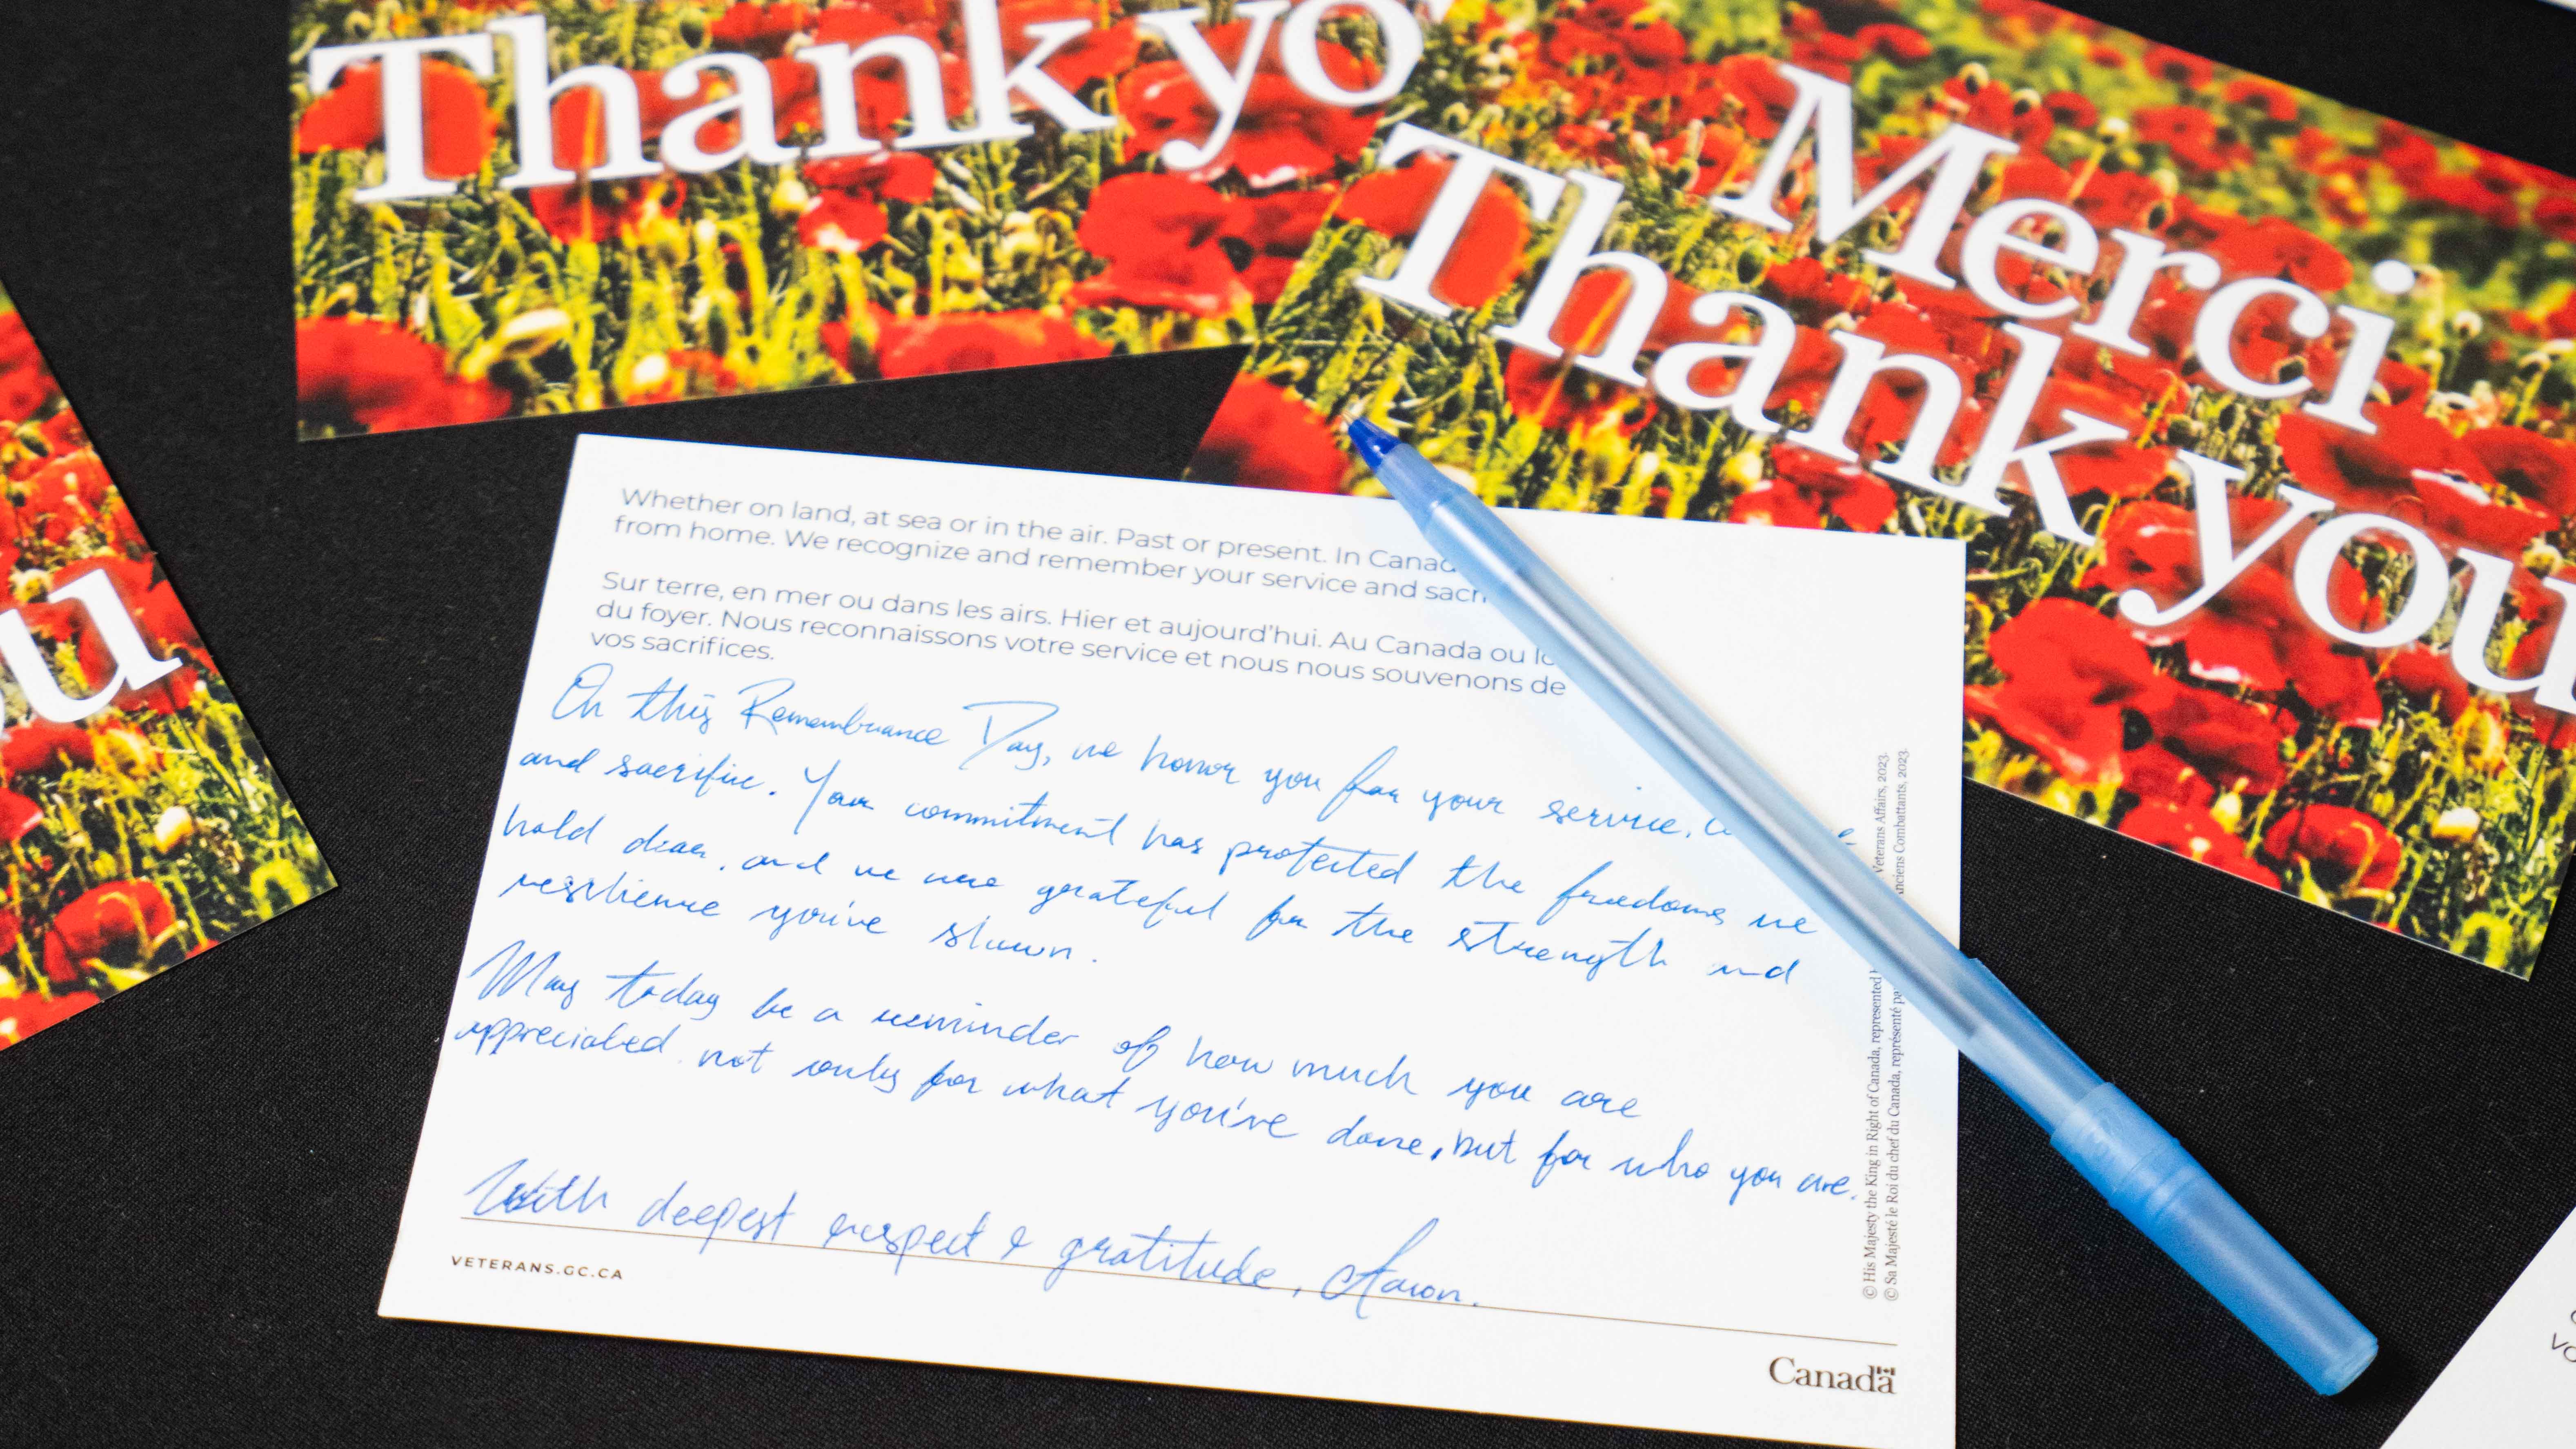 Thank yo
Merci
Thank you
ou
Whether on land, at sea or in the air. Past or present. In Canad
from home. We recognize and remember your service and sacri
Sur terre, en mer ou dans les airs. Hier et aujourd'hui. Au Canada ou lo
du foyer. Nous reconnaissons votre service et nous nous souvenons de
vos sacrifices.
On this Remembrance Day, we honor you for your service,
and sacrifice. Your commitment has protected the freedoms we
hold dear, and we are grateful for the strength and
resilience you've shown.
May today be a reminder of how much you are
appreciated. not only for what you've done, but for who you are.
With deepest respect & gratitude, Aaron.
VETERANS.GC.CA
Canada
© His Majesty the King in Right of Canada, represented Veterans Affairs, 2023.
© Sa Majesté le Roi du chef du Canada, représenté pa nciens Combattants, 2023.